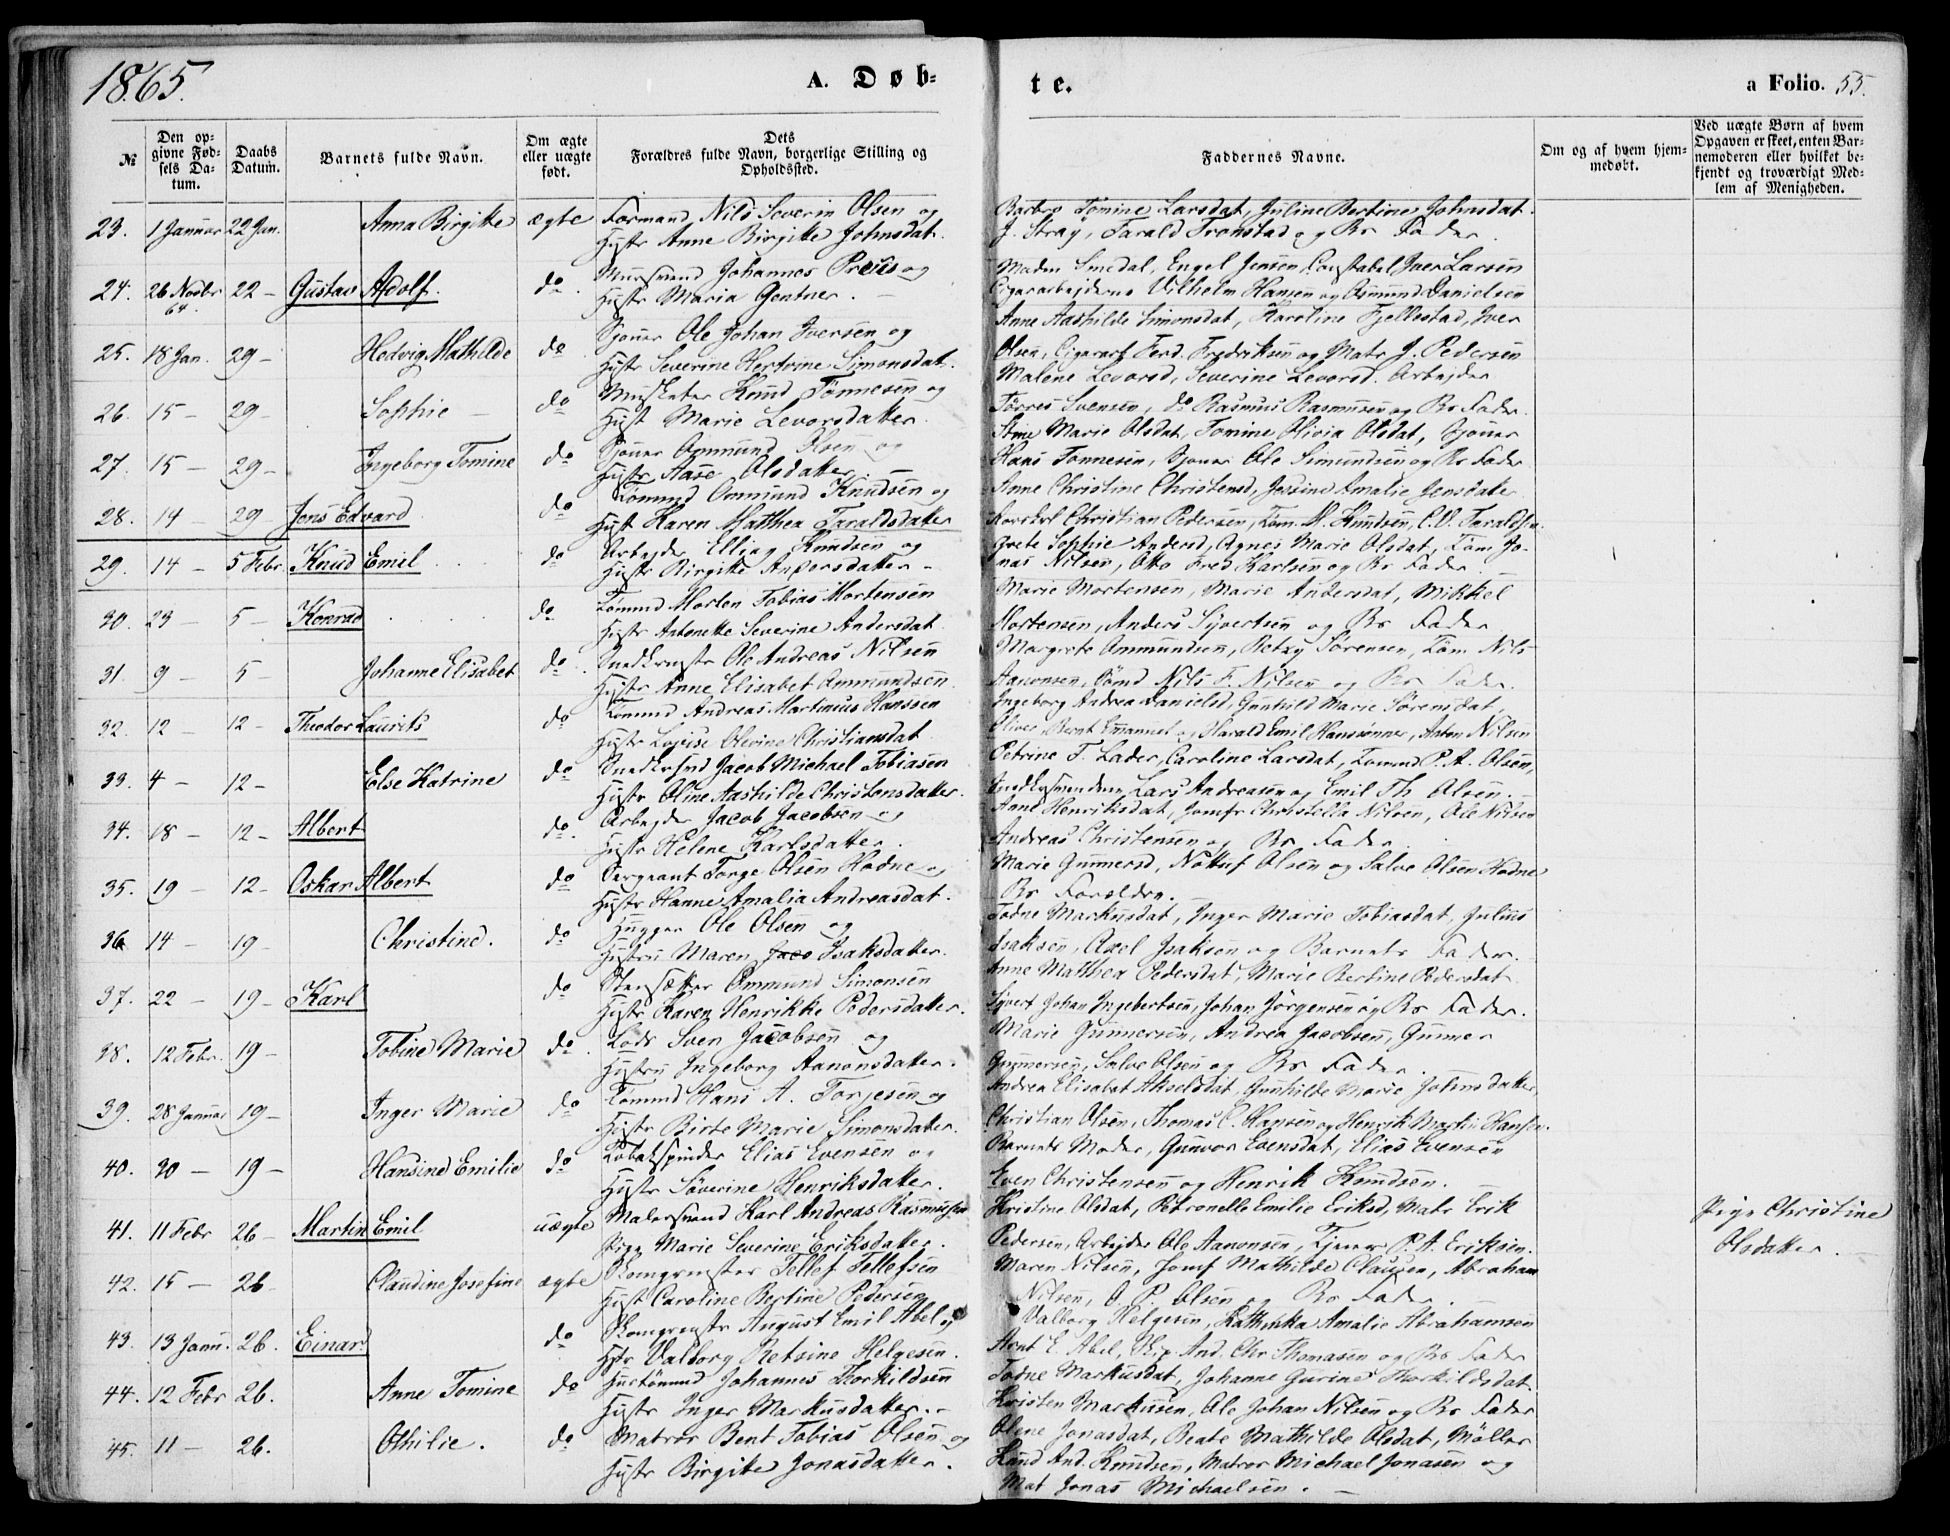 1865.
A. Døb-
te.
a Folio. 55.
№
Den op-
givne Fød-
sels Da-
tum.
Daabs
Datum.
Barnets fulde Navn.
Om ægte
eller uægte
født.
Dets
Forældres fulde Navn, borgerlige Stilling og
Opholdssted.
Faddernes Navne.
Om og af hvem hjem-
medøbt.
Ved uægte Børn af hvem
Opgaven er skeet, enten Bar-
nemoderen eller hvilket be-
kjendt og troværdigt Med-
lem af Menigheden.
23. 1 Januar 22 Jan. Anna Birgitte ægte Formand Nils Severin Olsen og
Hustr Anne Birgitte Johnsdat.
Barbro Tomine Larsdat, Juline Bertine Johnsdat.
J. Stray, Tarald Tronstad og Bs Fader.
24. 26 Novbr 64. 22 - Gustav Adolf. do. Muursvend Johannes Preus og
Hustr Maria Gentner. -
Madm Smedal, Engel Jensen, Constabel Iver Larsen
Cigararbejderne Vilhelm Hansen og Osmund Danielsen
25. 18 Jan. 29 - Hedvig Mathilde do Sjouer Ole Johan Iversen og
Hustr Severine Hertvine Simonsdat.
Anne Aashilde Simonsdat, Karoline Fjellestad, Iver
Olsen, Cigararb Ferd. Fredriksen og Matr J. Pedersen
26. 15 - 29 - Sophie - do Musketer Knud Tønnesen og
Hust Marie Levorsdatter.
Malene Levorsd, Severine Levorsd. Arbejder
Tørres Svensen, do Rasmus Rasmussen og Bs Fader.
27. 15 - 29 - Ingeborg Tomine do Sjouer Ommund Olsen og
Hustr Aase Olsdatter. -
Stine Marie Olsdat, Tomine Olivia Olsdat, Sjouer
Hans Tønnesen, Sjouer Ole Simundsen og Bs Fader
28. 14 - 29 Jens Edvard do Tømmd Ommund Knudsen og
Hust Karen Matthea Taraldsdatter
Anne Christine Christensd, Jessine Amalie Jensdatter
Christian Pedersen, Tøm. M. Knudsen, C. O. Taraldsen.
29. 14 - 5 Febr. Knud Emil do Arbejder Elling Knudsen og
Hustr Birgitte Andersdatter -
Grete Sophie Andersd, Agnes Marie Olsdat, Tøm Jo-
nas Nilsen, Otto Fred Karlsen og Bs Fader -
30. 23 - 5 - Konrad do Tømmd Morten Tobias Mortensen
Hustr Antonette Severine Andersdat.
Marie Mortensen, Marie Andersdat, Mikkel
Mortensen, Anders Syvertsen og Bs Fader
31. 9 - 5 - Johanne Elisabet do. Snedkermstr Ole Andreas Nilsen
Hustr Anne Elisabet Ommundsen
Margrete Ommundsen, Betzy Sørensen, Tøm Nils
Aanonsen, Tømd Nils F. Nilsen og Bs Fader.
32. 12 - 12 - Theodor Laurits do Tømmd Andreas Martinius Hanssen
Hustr Lovise Olevine Christiansdat
Ingeborg Andrea Danielsd, Gunhild Marie Sørensdat,
Oliver Bernt Emanuel og Harald Emil Hanssønner, Anton Nilsen
33. 4 - 12 - Else Katrine do Snedkersvd Jacob Michael Tobiasen
Hustr Oline Aashilde Christensdatter.
Petrine T. Lader, Caroline Larsdat, Tømmd P. A. Olsen,
Snedkersvendene Lars Andreasen og Emil Th. Olsen. -
34. 18 - 12 - Albert do. Arbejder Jacob Jacobsen og
Hustr Helene Karlsdatter.
Anne Henriksdat, Jomfr Christella Nilsen, Ole Nilsen
Andreas Christensen og Bs Fader.
35. 19 - 12 - Oskar Albert do Sergeant Torge Olsen Hodne og
Hustr Hanne Amalia Andreasdat.
Marie Gunnersd, Nottuf Olsen og Salve Olsen Hodne
Bs Forældre. -
36 14 - 19 - Christine. do Hugger Ole Olsen og
Hustru Maren Isaksdatter.
Todne Markusdat, Inger Marie Tobiasdat, Julius
Isaksen, Axel Isaksen og Barnets Fader.
37. 22 - 19 - Karl do Stensætter Ommund Simonsen
Hustr Karen Henrikke Pedersdatter.
Anne Matthea Pedersdat, Marie Bertine Pedersdat
Syvert Johan Ingebertsen, Johan Jørgensen og Bs Fader.
38. 12 Febr. 19 - Tobine Marie do. Lods Sven Jacobsen og
Hustru Ingeborg Aanonsdatter.
Marie Gunnersen, Andrea Jacobsen, Gunner
Gunnersen, Salve Olsen og Bs Fader.
39. 28 Januar 19 - Inger Marie do Tømmd Hans A. Torjesen og
Hustr Birte Marie Simonsdatter.
Andrea Elisabet Akselsdat, Gunhilde Marie Johnsdatter,
Christian Olsen, Thomas C. Hansen og Henrik Martin Hansen.
40. 20 - 19 - Hansine Emilie do Tobakspinder Elias Evensen og
Hustr Severine Henriksdatter.
Barnets Moder, Gunvor Evensdat, Elias Evensen
Even Christensen og Henrik Knudsen. -
41. 11 Febr 26 - Martin Emil uægte Malersvend Karl Andreas Rasmussen
Pige Marie Severine Eriksdatter.
Kristine Olsdat, Petronelle Emilie Eriksd, Matr Erik
Pedersen, Arbejder Ole Aanonsen, Tjener P. A. Eriksen.
Pige Christine
Olsdatter. -
42. 15 - 26 Claudine Josefine ægte Tellef Tellefsen
Hust Caroline Bertine Pedersen
Maren Nilsen, Jomf Mathilde Clausen, Abraham
Nilsen, O. P. Olsen og Bs Fader. -
43. 13 Janu. 26. Einar. do August Emil Abel og
Hstr Valborg Retsine Helgesen.
Valborg Helgesen, Kathinka Amalie Abrahamsen
Arnt E. Abel, Skip. And. Chr Thomasen og Bs Fader
44. 12 Febr 26. Anne Tomine do Hustømmd Johannes Thorkildsen
Hustr Inger Markusdatter. -
Todne Markusdat, Johanne Gurine Thorkildsdat.
Kristen Markussen, Ole Johan Nilsen og Bs Fader
45. 11 - 26. Othilie. do Matros Bent Tobias Olsen og
Hustr Birgitte Jonasdatter.
Oline Jonasdat, Beate Mathilde Olsdat, Møller
Knud And. Knudsen, Matros Michael Jonasen og
Mat Jonas Michaelsen. -